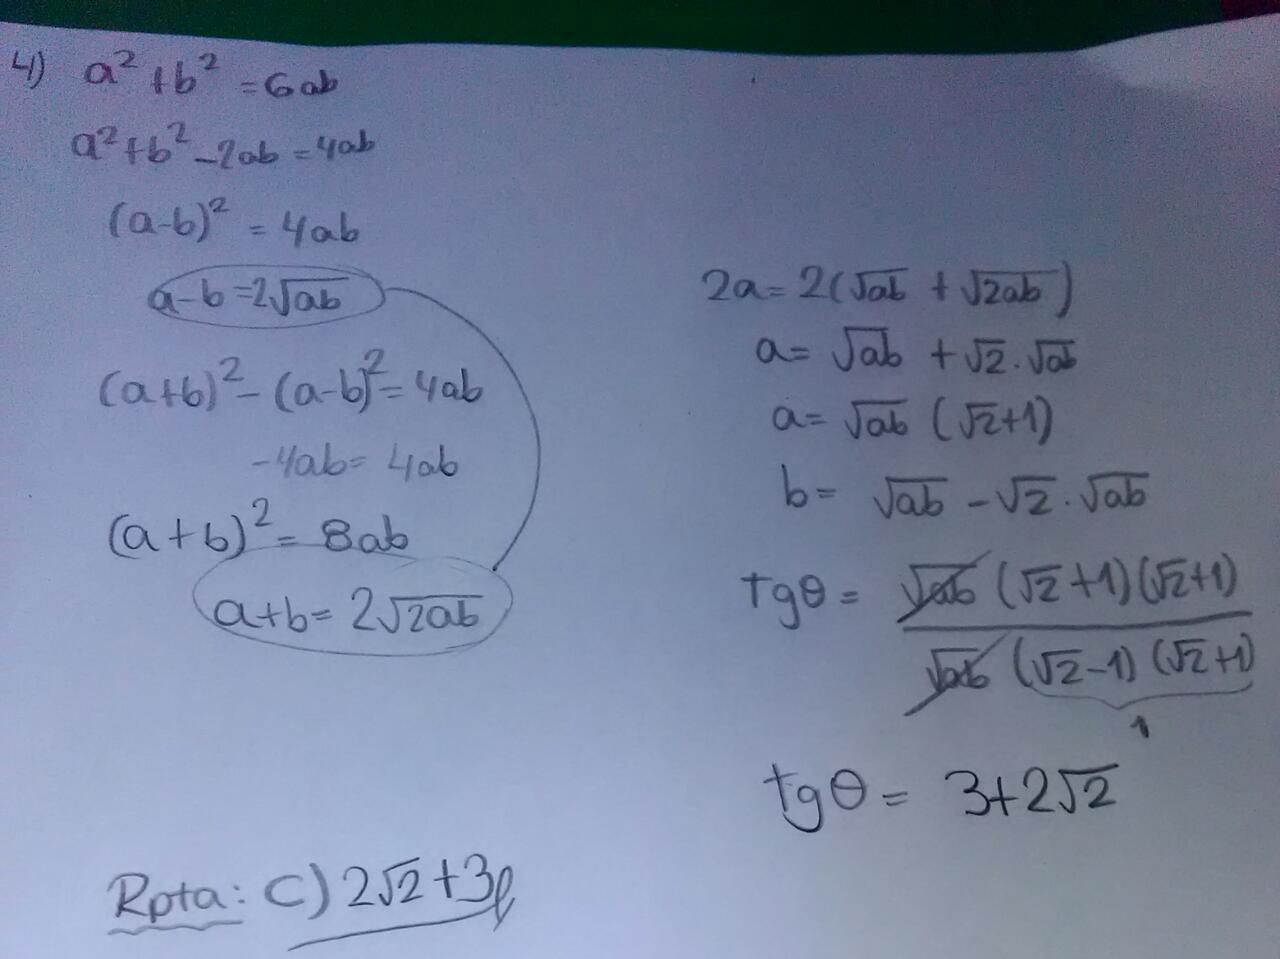 4) a² + b² = 6ab
a² + b² - 2ab = 4ab
(a-b)² = 4ab
a-b = 2√ab
(a+b)² - (a-b)² = 4ab
-4ab = 4ab
(a+b)² = 8ab
a+b = 2√2ab
2a = 2(√ab + √2ab)
a = √ab + √2 . √ab
a = √ab (√2+1)
b = √ab - √2 . √ab
tgθ = √ab (√2+1)(√2+1)
√ab (√2-1) (√2+1)
1
tgθ = 3+2√2
Rpta: C) 2√2+3